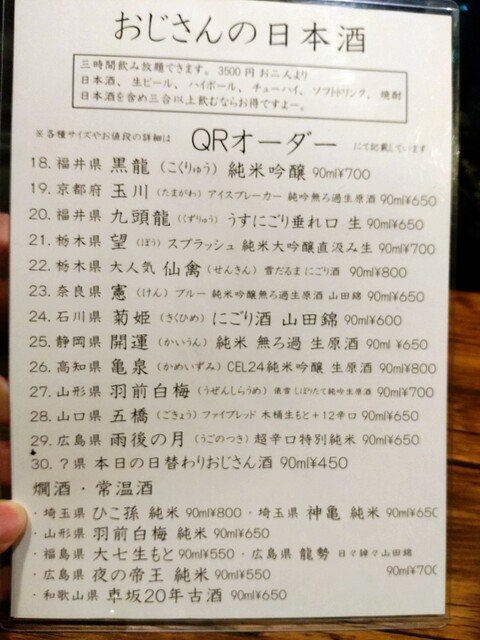 おじさんの日本酒
三時間飲み放題できます。3500円 お二人より
日本酒、生ビール、ハイボール、チューハイ、ソフトドリンク、焼酎
日本酒を含め三合以上飲むならお得ですよー。
※各種サイズやお値段の詳細は QRオーダー にて記載しています
18. 福井県 黒龍（こくりゅう）純米吟醸 90ml¥700
19. 京都府 玉川（たまがわ）アイスブレーカー 純吟無ろ過生原酒 90ml¥650
20. 福井県 九頭龍（くずりゅう）うすにごり垂れ口 生 90ml¥650
21. 栃木県 望（ぼう）スプラッシュ 純米大吟醸直汲み生 90ml¥700
22. 栃木県 大人気 仙禽（せんきん）雪だるま にごり酒 90ml¥800
23. 奈良県 憲（けん）ブルー 純米吟醸無ろ過生原酒 山田錦 90ml¥650
24. 石川県 菊姫（きくひめ）にごり酒 山田錦 90ml¥600
25. 静岡県 開運（かいうん）純米 無ろ過 生原酒 90ml ¥650
26. 高知県 亀泉（かめいずみ）CEL24純米吟醸 生原酒 90ml¥800
27. 山形県 羽前白梅（うぜんしらうめ）俵雪 しぼりたて純吟生原酒 90ml¥700
28. 山口県 五橋（ごきょう）ファイブレッド 木桶生もと＋12辛口 90ml¥650
29. 広島県 雨後の月（うごのつき）超辛口特別純米 90ml¥650
30. ？県 本日の日替わりおじさん酒 90ml¥450
燗酒・常温酒
・埼玉県 ひこ孫 純米 90ml¥800 ・埼玉県 神亀 純米 90ml¥650
・山形県 羽前白梅 純米 90ml¥650
・福島県 大七生もと 90ml¥550 ・広島県 龍勢 日々綽々山田錦
・広島県 夜の帝王 純米 90ml¥550 90ml¥700
・和歌山県 車坂20年古酒 90ml¥650